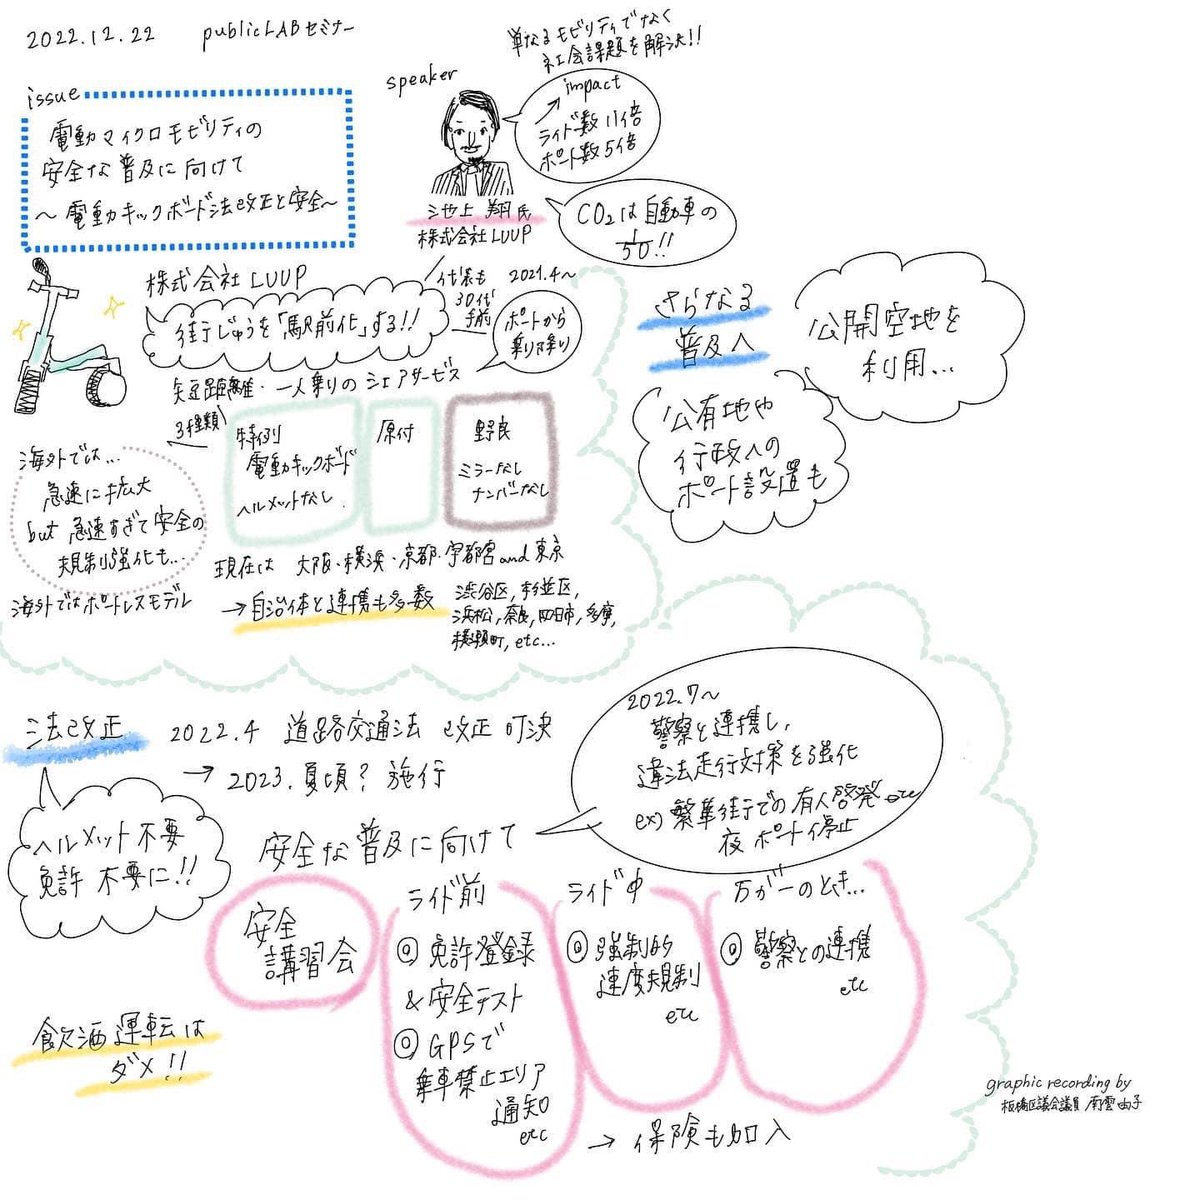 2022.12.22 publicLABセミナー
issue
電動マイクロモビリティの
安全な普及に向けて
～電動キックボード法改正と安全～
speaker
単なるモビリティでなく
社会課題を解決!!
impact
ライド数11倍
ポート数5倍
池上 翔氏
株式会社LUUP
CO2は自動車の
1/50!!
株式会社LUUP
代表も
30代
手前
街じゅうを「駅前化」する!!
2021.4～
ポートから
乗り降り
短距離・一人乗りのシェアサービス
3種類
特例
電動キックボード
ヘルメットなし
原付
野良
ミラーなし
ナンバーなし
海外では…
急速に拡大
but 急速すぎて安全の
規制強化も…
海外ではポートレスモデル
現在は 大阪・横浜・京都・宇都宮 and 東京
→自治体と連携も多数
渋谷区,杉並区,
浜松,奈良,四日市,多摩,
横瀬町,etc…
さらなる
普及へ
公開空地を
利用…
公有地や
行政への
ポート設置も
法改正
2022.4 道路交通法 改正 可決
→ 2023.夏頃? 施行
ヘルメット不要
免許 不要に!!
2022.7～
警察と連携し,
違法走行対策を強化
ex)繁華街での有人啓発 etc
夜ポート停止
安全な普及に向けて
安全
講習会
ライド前
◎免許登録
&安全テスト
◎GPSで
乗車禁止エリア
通知
etc
ライド中
◎強制的
速度規制
etc
万が一のとき…
◎警察との連携
etc
→ 保険も加入
飲酒運転は
ダメ!!
graphic recording by
板橋区議会議員 南雲由子